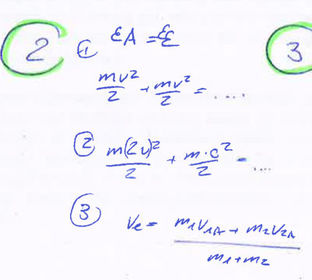 2 ① εA = Eε 3
mv²/2 + mv²/2 = ....
② m(2v)²/2 + m·0²/2 = ...
③ Ve = m₁v₁A + m₂v₂A / m₁+m₂